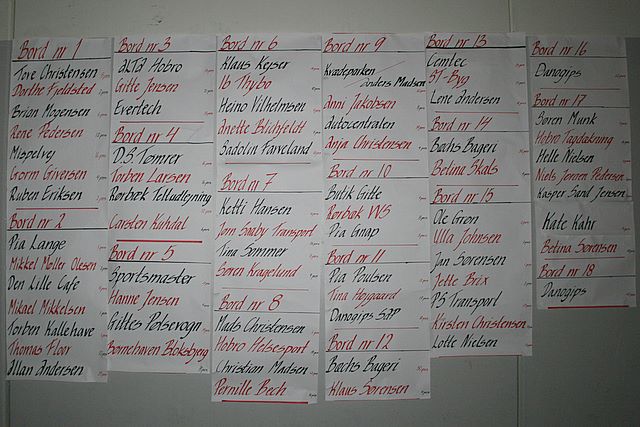 Bord nr 1
Tove Christensen
Dorthe Fjeldsted
Brian Mogensen
Rene Pedersen
Mispelvej
Gorm Giversen
Ruben Eriksen
Bord nr 2
Pia Lange
Mikkel Møller Olesen
Den Lille Cafe
Mikael Mikkelsen
Torben Kallehave
Thomas Floor
Allan Andersen
Bord nr 3
ALTA Hobro
Gitte Jensen
Evertech
Bord nr 4
D.S. Tømrer
Torben Larsen
Rørbæk Teltudlejning
Carsten Kuhdal
Bord nr 5
Sportsmaster
Hanne Jensen
Gittes Pølsevogn
Børnehaven Bloksbjerg
Bord nr 6
Klaus Kejser
Ib Thybo
Heino Vilhelmsen
Anette Blichfeldt
Sadolin Farveland
Bord nr 7
Ketti Hansen
Jørn Saaby Transport
Tina Sommer
Søren Kragelund
Bord nr 8
Mads Christensen
Hobro Helsesport
Christian Madsen
Pernille Bech
Bord nr 9
Kvadeparken / Anders Madsen
Anni Jakobsen
Autocentralen
Anja Christensen
Bord nr 10
Butik Gitte
Rørbæk VVS
Pia Gnap
Bord nr 11
Pia Poulsen
Tina Højgaard
Danogips
Bord nr 12
Bæchs Bageri
Klaus Sørensen
Bord nr 13
Cemtec
ST-Byg
Lene Andersen
Bord nr 14
Bæchs Bageri
Betina Skals
Bord nr 15
Ole Grøn
Ulla Johnsen
Jan Sørensen
Jette Brix
PS Transport
Kirsten Christensen
Lotte Nielsen
Bord nr 16
Danogips
Bord nr 17
Søren Munk
Hobro Tagdækning
Helle Nielsen
Niels Jørnen Pedersen
Kasper Sand Jensen
Kate Kahr
Betina Sørensen
Bord nr 18
Danogips